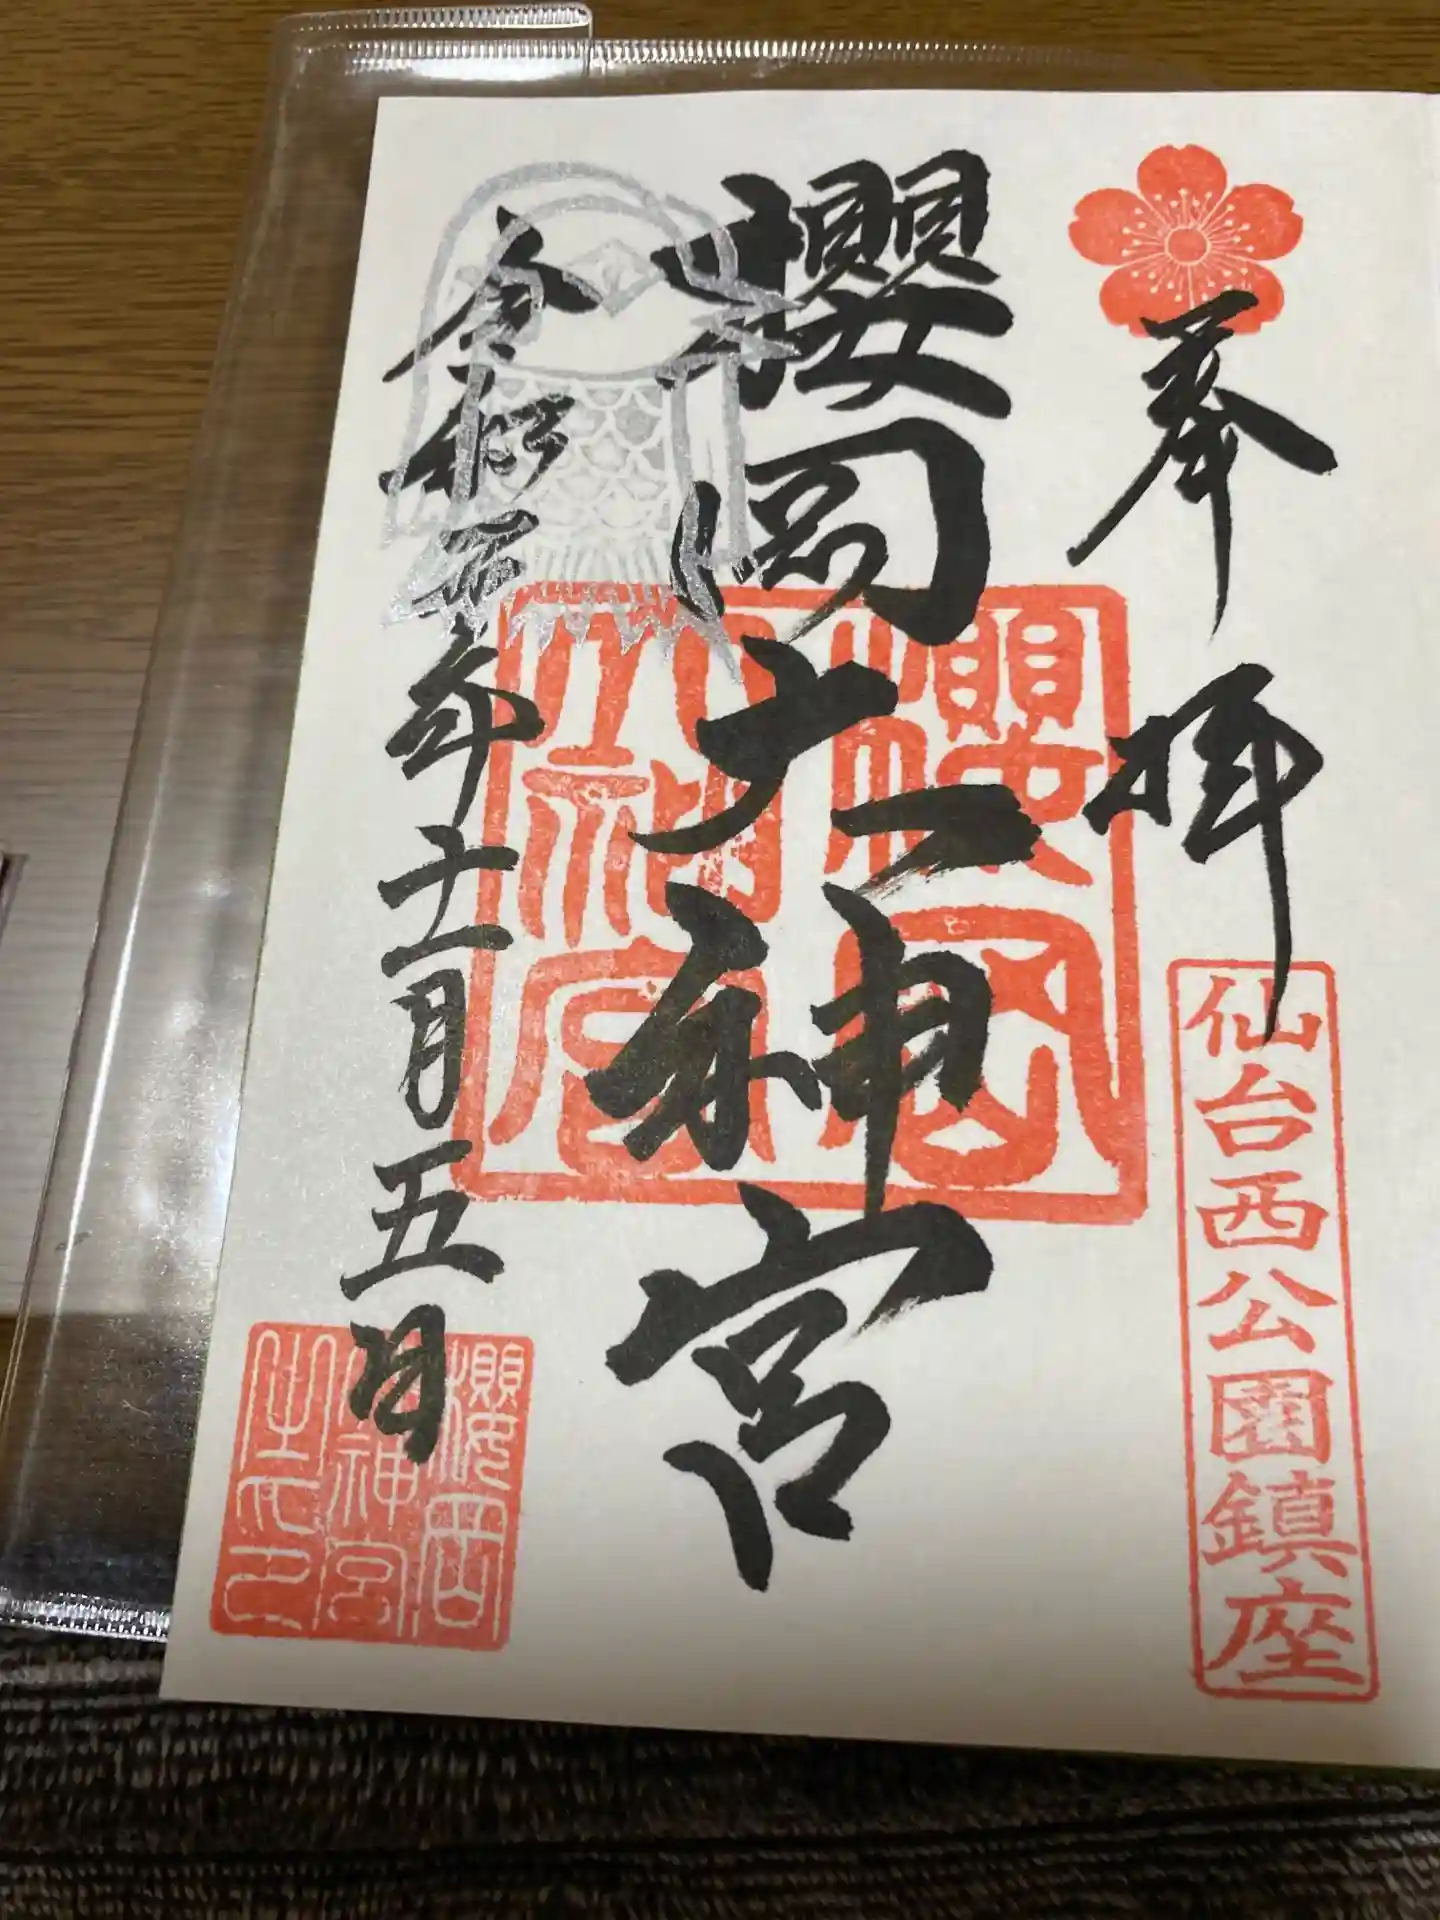 奉拝
仙台西公園鎮座
櫻岡大神宮
櫻岡大神宮
令和四年十一月五日
櫻岡
大神宮
之印